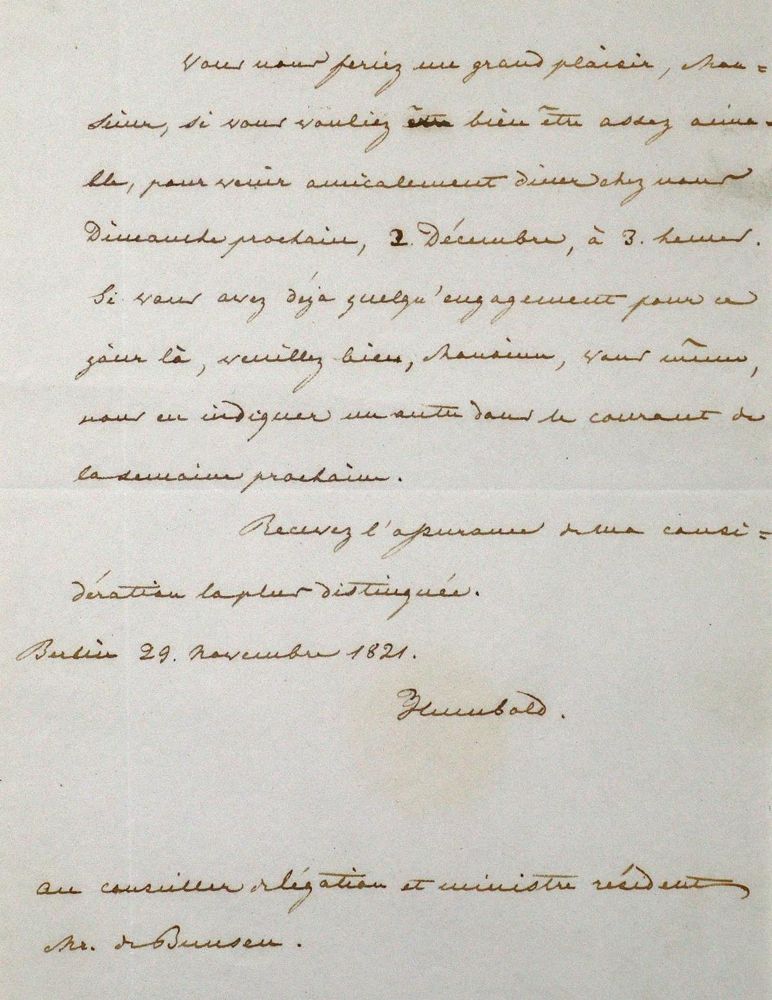 Vous nous feriez un grand plaisir, Mon=
sieur, si vous vouliez être bien être assez aima-
ble, pour venir amicalement diner chez nous
Dimanche prochain, 2. Décembre, à 3. heures.
Si vous avez déja quelqu'engagement pour ce
jour là, veuillez bien, Monsieur, vous même,
nous en indiquer un autre dans le courant de
la semaine prochaine.
Recevez l'assurance de ma consi=
dération la plus distinguée.
Berlin 29. Novembre 1821.
Humbold.
au conseiller de légation et ministre résident
Mr. de Bunsen.